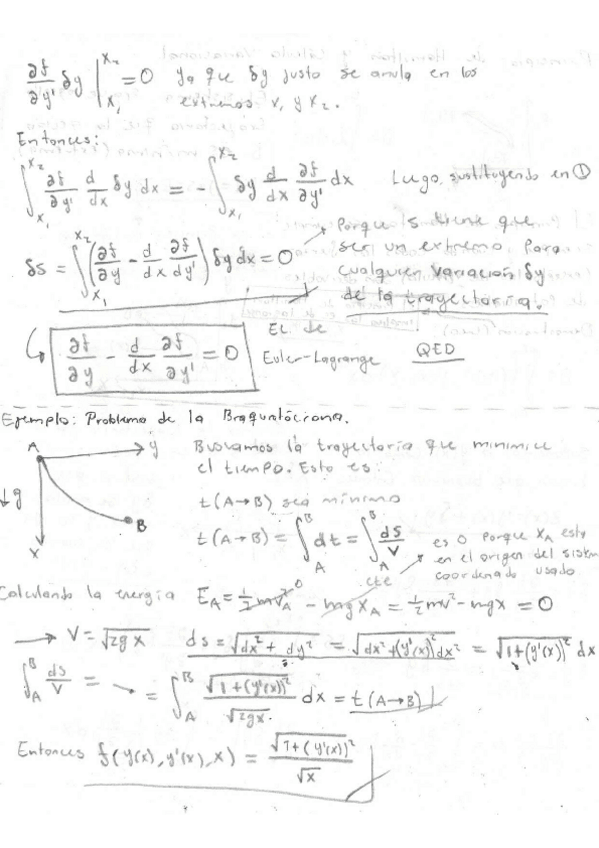 ∂f/∂y' δy |_{x₁}^{x₂} = 0 ya que δy justo se anula en los
extremos x₁ y x₂.
Entonces:
∫_{x₁}^{x₂} ∂f/∂y' d/dx δy dx = - ∫_{x₁}^{x₂} δy d/dx ∂f/∂y' dx Luego, sustituyendo en ①
δs = ∫_{x₁}^{x₂} (∂f/∂y - d/dx ∂f/dy') δy dx = 0 → Porque s tiene que
ser un extremo para
cualquier variación δy
de la trayectoria.
∂f/∂y - d/dx ∂f/∂y' = 0 Ec de
Euler-Lagrange QED
Ejemplo: Problema de la Braquistócrona.
A y Buscamos la trayectoria que minimice
el tiempo. Esto es:
↓g t(A→B) sea mínimo
B t(A→B) = ∫_A^B dt = ∫_A^B ds/V es 0 porque x_A esta
x en el origen del sistem
cte coordenado usado
Calculando la energía E_A = ½mv_A² - mgx_A = ½mv² - mgx = 0
→ V = √2gx ds = √dx² + dy² = √dx² + (y'(x))²dx² = √1+(y'(x))² dx
∫_A^B ds/V = → = ∫_A^B √1+(y'(x))²/√2gx dx = t(A→B)
Entonces f(y(x), y'(x), x) = √1+(y'(x))²/√x